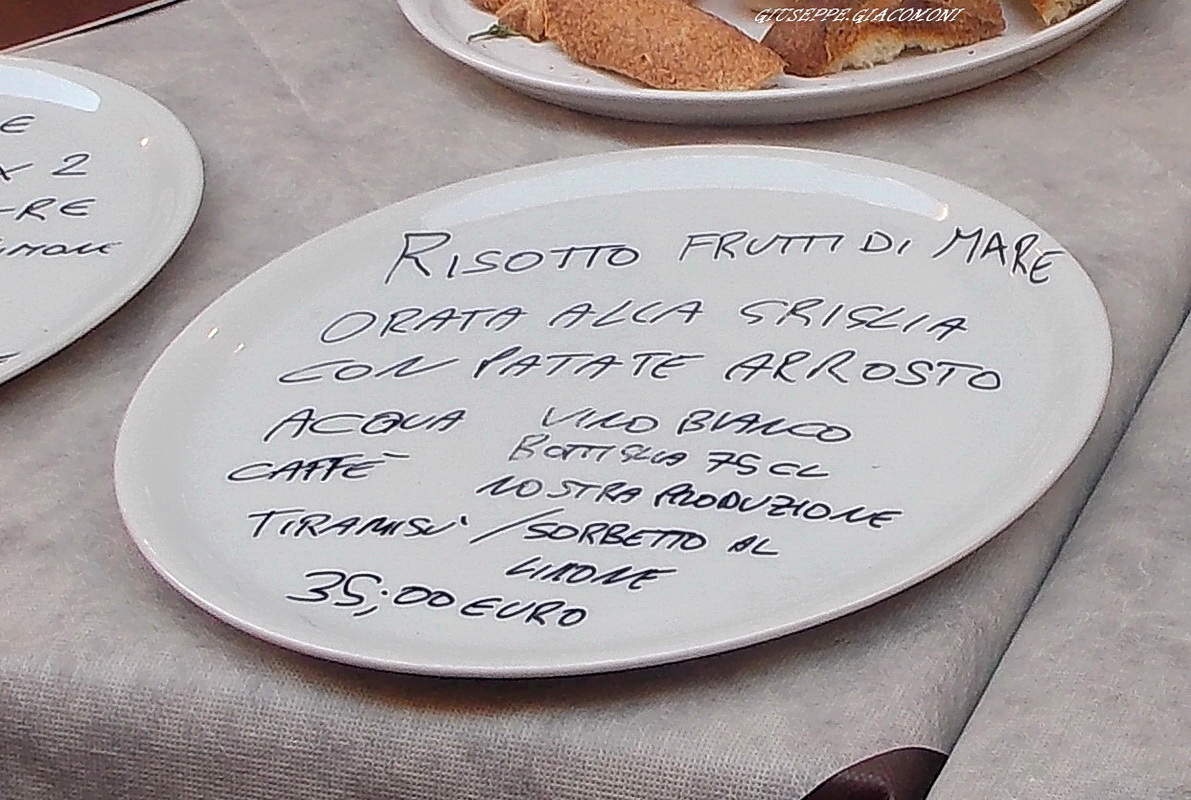 GIUSEPPE.GIACOMONI
E
X 2
-RE
RISOTTO FRUTTI DI MARE
ORATA ALLA GRIGLIA
CON PATATE ARROSTO
ACQUA VINO BIANCO
BOTTIGLIA 75 CL
CAFFÈ
NOSTRA PRODUZIONE
TIRAMISU' / SORBETTO AL
LIMONE
35,00 EURO